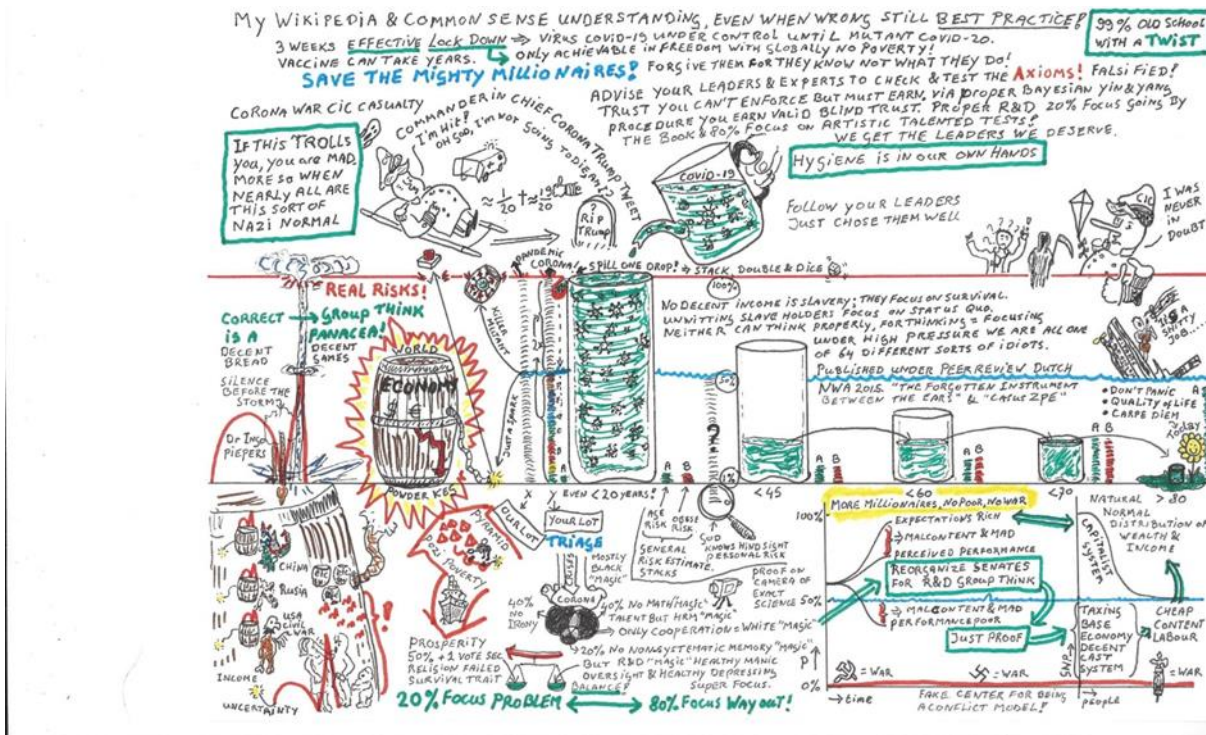 My WIKIPEDIA & COMMON SENSE UNDERSTANDING, EVEN WHEN WRONG STILL BEST PRACTICE!
3 WEEKS EFFECTIVE LOCK DOWN ⇒ VIRUS COVID-19 UNDER CONTROL UNTIL MUTANT COVID-20.
VACCINE CAN TAKE YEARS. ONLY ACHIEVABLE IN FREEDOM WITH GLOBALLY NO POVERTY!
SAVE THE MIGHTY MILLIONAIRES! FORGIVE THEM FOR THEY KNOW NOT WHAT THEY DO!
99% OLD SCHOOL
WITH A TWIST
ADVISE YOUR LEADERS & EXPERTS TO CHECK & TEST THE AXIOMS! FALSIFIED!
TRUST YOU CAN'T ENFORCE BUT MUST EARN, VIA PROPER BAYESIAN YIN & YANG
PROCEDURE YOU EARN VALID BLIND TRUST. PROPER R&D 20% FOCUS GOING BY
THE BOOK & 80% FOCUS ON ARTISTIC TALENTED TESTS!
WE GET THE LEADERS WE DESERVE.
HYGIENE IS IN OUR OWN HANDS
CORONA WAR CIC CASUALTY
IF THIS TROLLS
YOU, YOU ARE MAD.
MORE SO WHEN
NEARLY ALL ARE
THIS SORT OF
NAZI NORMAL
COMMANDER IN CHIEF CORONA TRUMP TWEET
I'M HIT!
OH GOD, I'M NOT GOING TO DIE AM I?
≈ 1/20 † ≈ 19/20
?
RIP
TRUMP
COVID-19
FOLLOW YOUR LEADERS
JUST CHOSE THEM WELL
CIC
I WAS
NEVER
IN
DOUBT
PANDEMIC
CORONA!
SPILL ONE DROP! ⇒ STACK, DOUBLE & DICE
100%
REAL RISKS!
CORRECT → GROUP THINK
IS A PANACEA!
DECENT DECENT
BREAD GAMES
SILENCE
BEFORE THE
STORM
Dr INGO
PIEPERS
WORLD
ECONOMY
POWDER KEG
KILLER
MUTANT
JUST A SPARK
2x
NO DECENT INCOME IS SLAVERY; THEY FOCUS ON SURVIVAL.
UNWITTING SLAVE HOLDERS FOCUS ON STATUS QUO.
NEITHER CAN THINK PROPERLY, FOR THINKING = FOCUSING
UNDER HIGH PRESSURE WE ARE ALL ONE
OF 64 DIFFERENT SORTS OF IDIOTS.
PUBLISHED UNDER PEER REVIEW DUTCH
NWA 2015 "THE FORGOTTEN INSTRUMENT
BETWEEN THE EARS" & "CASUS ZPE"
IT'S A
SHITTY
JOB....
• DON'T PANIC
• QUALITY OF LIFE
• CARPE DIEM
TODAY
50%
1%
A B
A B
A B
A B
A
X Y EVEN <20 YEARS!
<45
<60
<70
> 80
OUR LOT
YOUR LOT
TRIAGE
AGE
RISK
OBESE
RISK
GENERAL
RISK ESTIMATE.
STACKS
GOD
KNOWS HINDSIGHT
PERSONAL RISK
PROOF ON
CAMERA OF
EXACT
SCIENCE
PYRAMID
POVERTY
CHINA
RUSSIA
USA
CIVIL
WAR
CIC
INCOME
UNCERTAINTY
PROSPERITY
50% + 1 VOTE SEC
RELIGION FAILED
SURVIVAL TRAIT
CRISES
MOSTLY
BLACK
"MAGIC"
CORONA
40%
NO
IRONY
40% NO MATH "MAGIC"
TALENT BUT HRM "MAGIC"
→ ONLY COOPERATION = WHITE "MAGIC"
→ 20% NO NONSYSTEMATIC MEMORY "MAGIC"
BUT R&D "MAGIC" HEALTHY MANIC
OVERSIGHT & HEALTHY DEPRESSING
BALANCE? SUPER FOCUS.
20% FOCUS PROBLEM ↔ 80% FOCUS WAY OUT!
MORE MILLIONAIRES, NO POOR, NO WAR
100%
EXPECTATIONS RICH
⇒ MALCONTENT & MAD
PERCEIVED PERFORMANCE
REORGANIZE SENATES
FOR R&D GROUP THINK
50%
⇒ MALCONTENT & MAD
PERFORMANCE POOR
JUST PROOF
P↑
0%
→ time
= WAR
= WAR
= WAR
FAKE CENTER FOR BEING
A CONFLICT MODEL!
→ people
CAPITALIST
SYSTEM
NATURAL
NORMAL
DISTRIBUTION OF
WEALTH &
INCOME
TAXING
BASE
ECONOMY
DECENT
CAST
SYSTEM
CHEAP
CONTENT
LABOUR